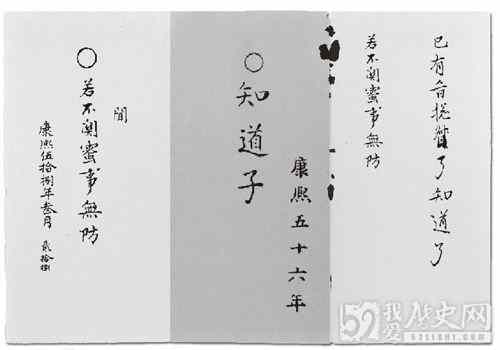 已有旨提督了知道了
若不閑蜜事無防
康熙五十六年
○知道子
間
○若不蜜事無防
康熙伍拾捌年叁月 貳拾捌
52我爱历史网
52LISHI.COM